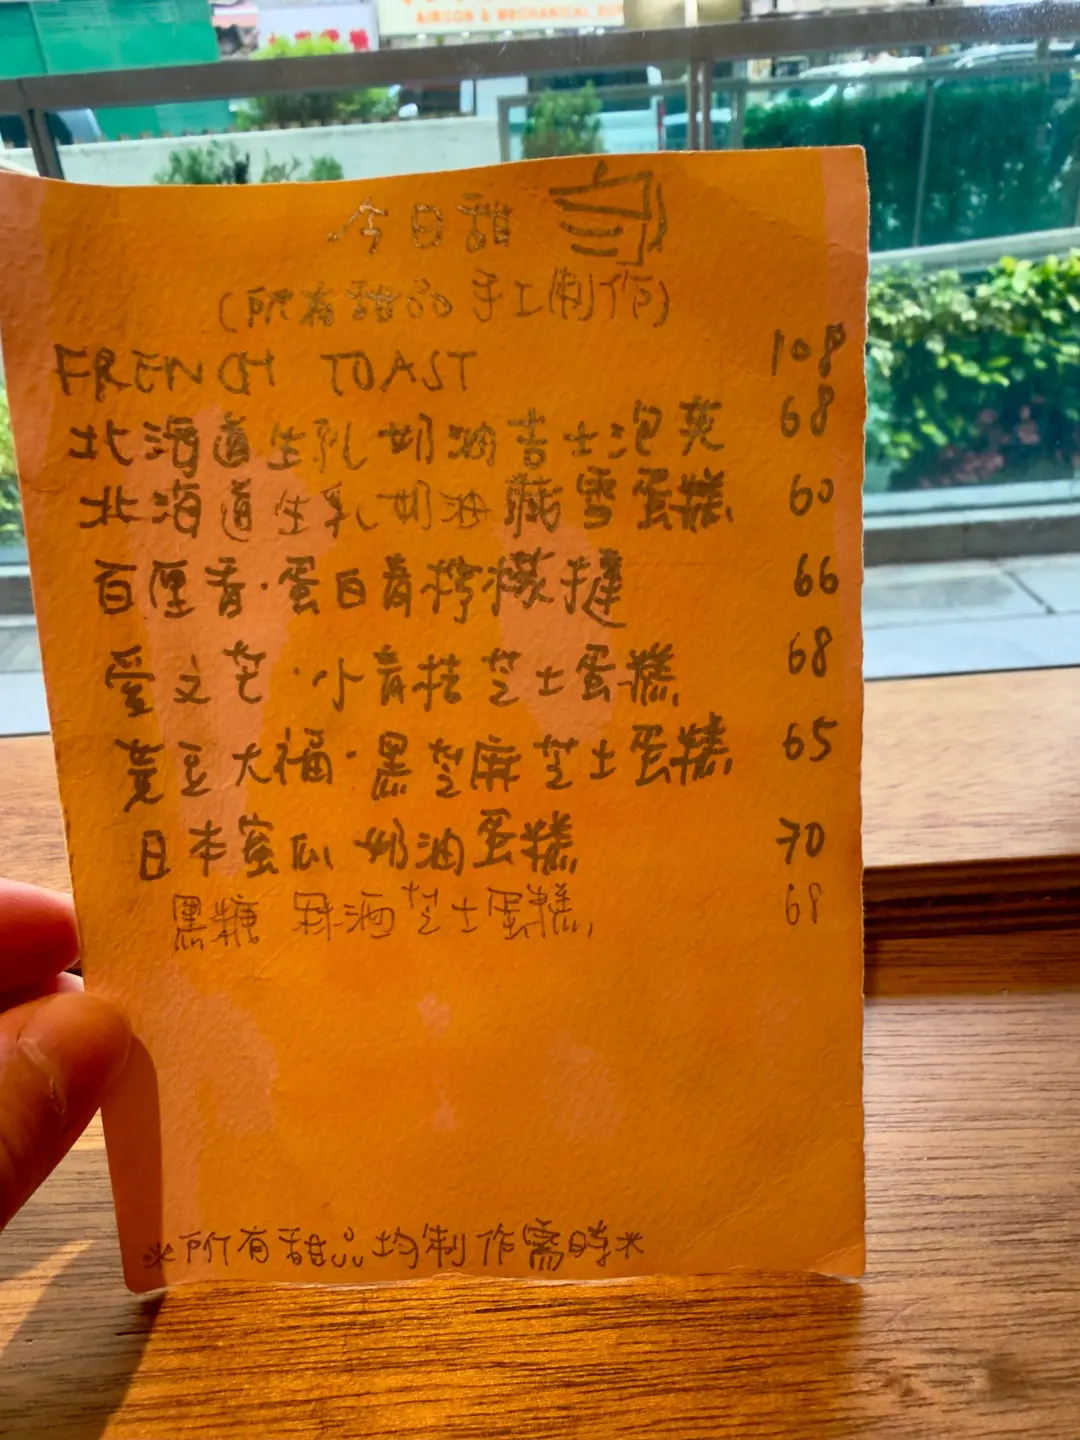 AIRCON & MECHANICAL
今日甜
(所有甜品手工制作)
FRENCH TOAST 108
北海道生乳奶油吉士泡芙 68
北海道生乳奶油藏雪蛋糕 60
百厘香·蛋白青柠檬撻 66
愛文芒·小青桔芝士蛋糕 68
豆大福·黑芝麻芝士蛋糕 65
日本蜜瓜奶油蛋糕 70
黑糖 冧酒芝士蛋糕 68
*所有甜品均制作需時*